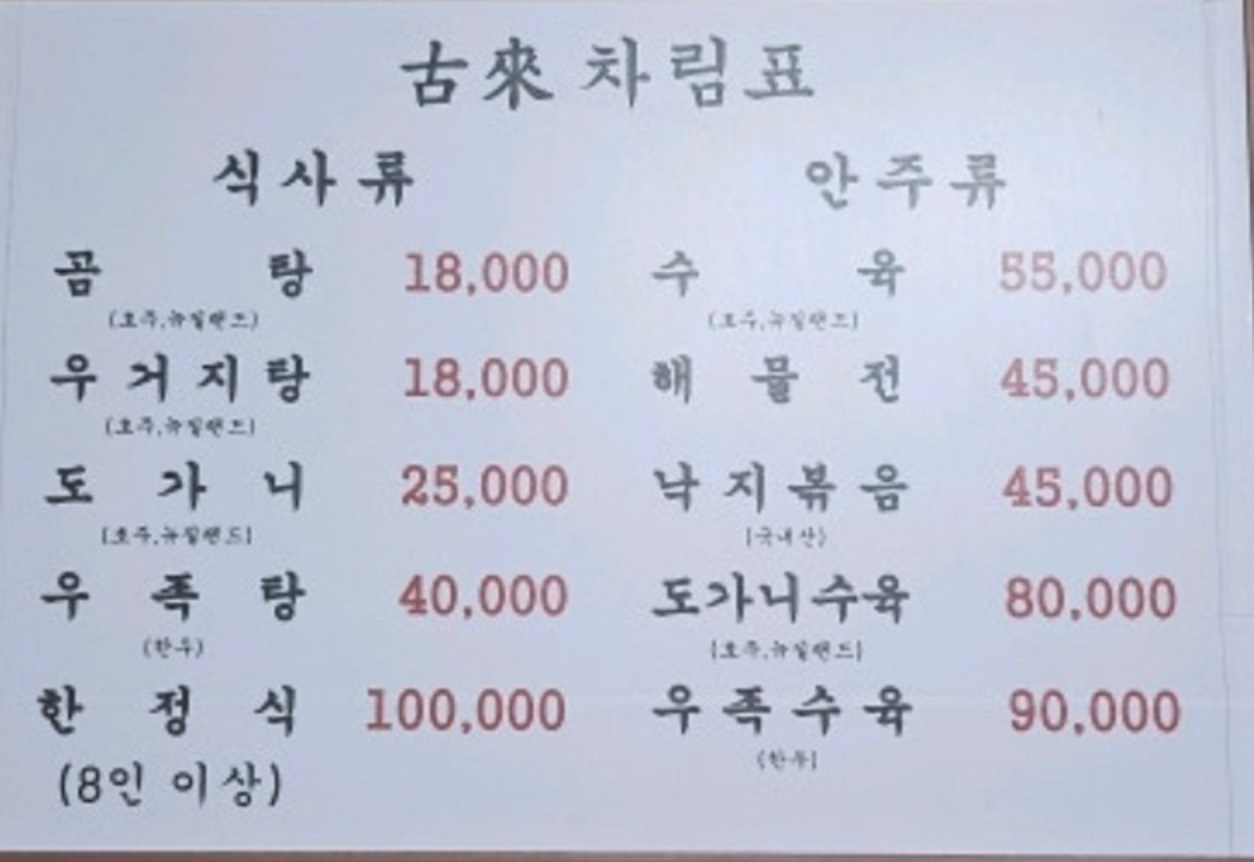 古來 차림표
식사류
곰탕 18,000
(호주,뉴질랜드)
우거지탕 18,000
(호주,뉴질랜드)
도가니 25,000
(호주,뉴질랜드)
우족탕 40,000
(한우)
한정식 100,000
(8인 이상)
안주류
수육 55,000
(호주,뉴질랜드)
해물전 45,000
낙지볶음 45,000
(국내산)
도가니수육 80,000
(호주,뉴질랜드)
우족수육 90,000
(한우)